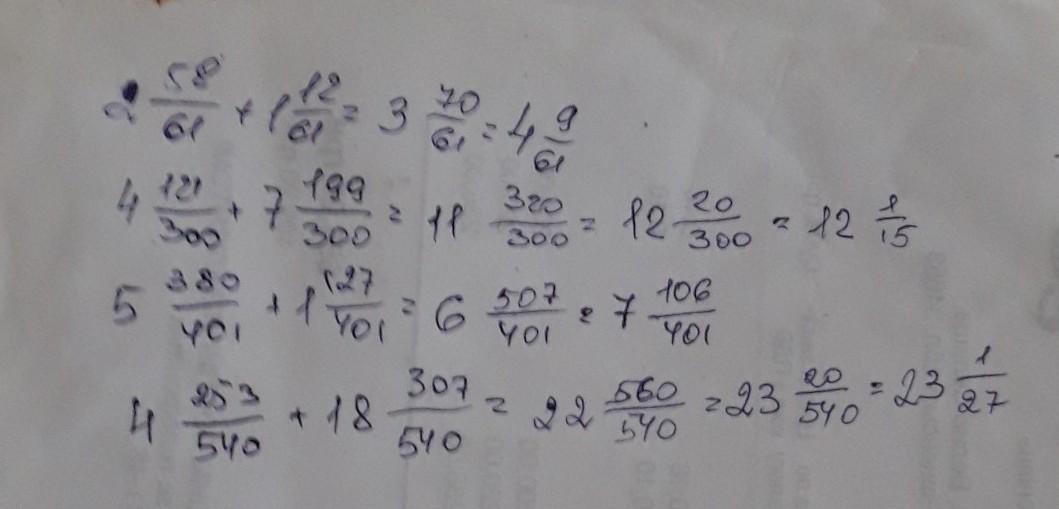 2 58/61 + 1 12/61 = 3 70/61 = 4 9/61
4 121/300 + 7 199/300 = 11 320/300 = 12 20/300 = 12 1/15
5 380/401 + 1 127/401 = 6 507/401 = 7 106/401
4 253/540 + 18 307/540 = 22 560/540 = 23 20/540 = 23 1/27